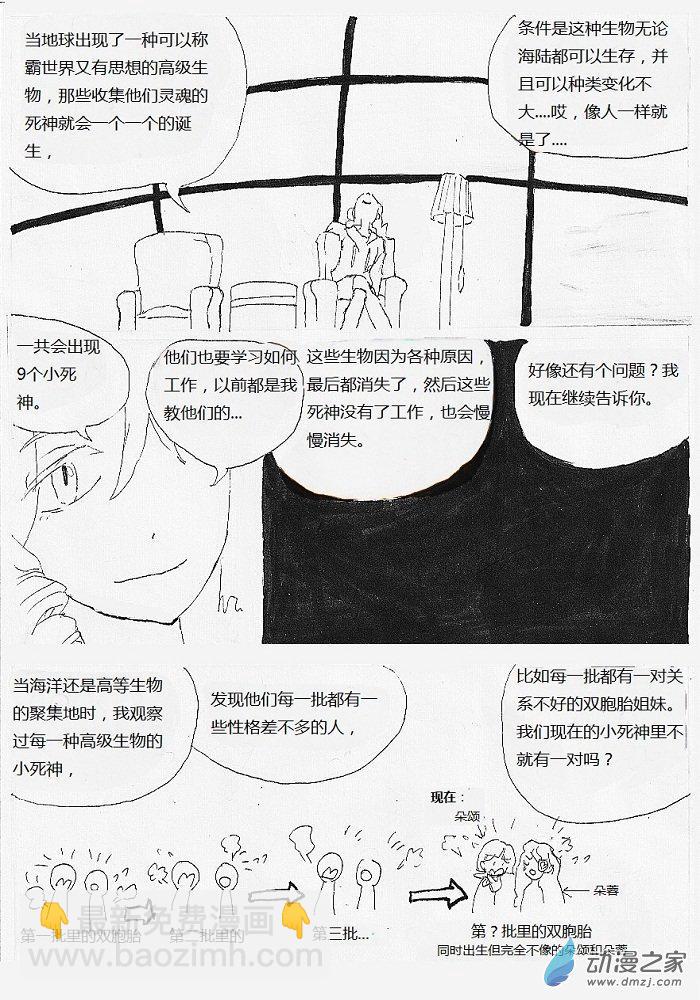 当地球出现了一种可以称
霸世界又有思想的高级生
物，那些收集他们灵魂的
死神就会一个一个的诞
生，
条件是这种生物无论
海陆都可以生存，并
且可以种类变化不
大....哎，像人一样就
是了....
一共会出现
9个小死
神。
他们也要学习如何
工作，以前都是我
教他们的...
这些生物因为各种原因，
最后都消失了，然后这些
死神没有了工作，也会慢
慢消失。
好像还有个问题？我
现在继续告诉你。
当海洋还是高等生物
的聚集地时，我观察
过每一种高级生物的
小死神，
发现他们每一批都有一
些性格差不多的人，
比如每一批都有一对关
系不好的双胞胎姐妹。
我们现在的小死神里不
就有一对吗？
现在：
朵颂
朵蓉
第一批里的双胞胎
第二批里的
第三批...
第？批里的双胞胎
同时出生但完全不像的朵颂和朵蓉
最新免费漫画
www.baozimh.com
动漫之家
www.dmzj.com